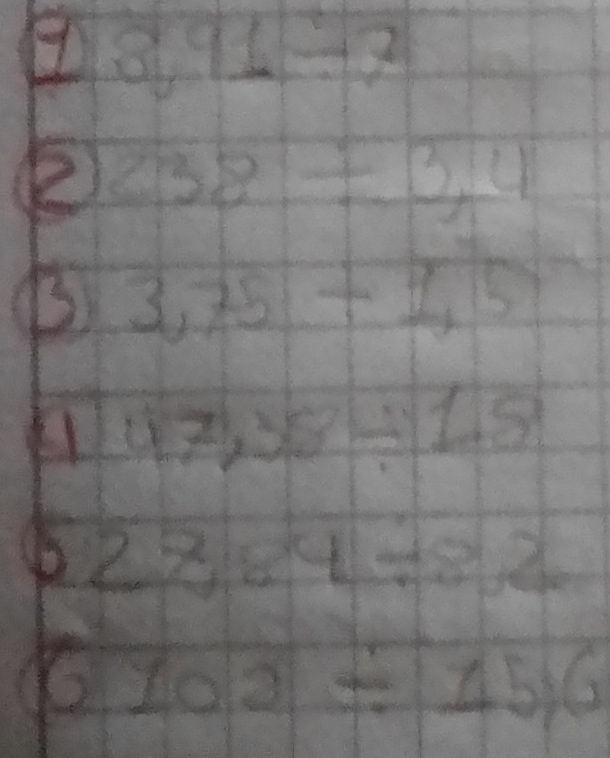 1 8,91 ÷ 3
2 238 ÷ 3,4
3 3,75 ÷ 1,5
4 47,38 ÷ 15
5 27,84 ÷ 8,2
6 102 ÷ 15,6